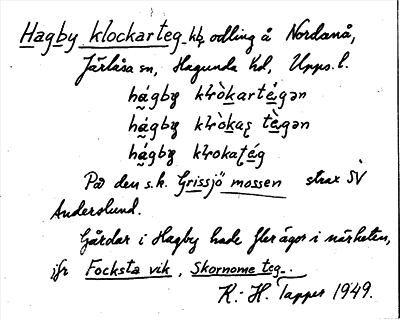 Hagby klockarteg, kb odling å Nordanå,
Järlåsa sn, Hagunda hd, Upps. l.
hágby klòkartégən
hágby klòkaʈ tègən
hágby klokaʈég
På den s.k. Grissjö mossen strax SV
Anderslund.
Gårdar i Hagby hade fler ägor i närheten,
jfr Focksta vik, Skornome teg.
K.-H. Tapper 1949.